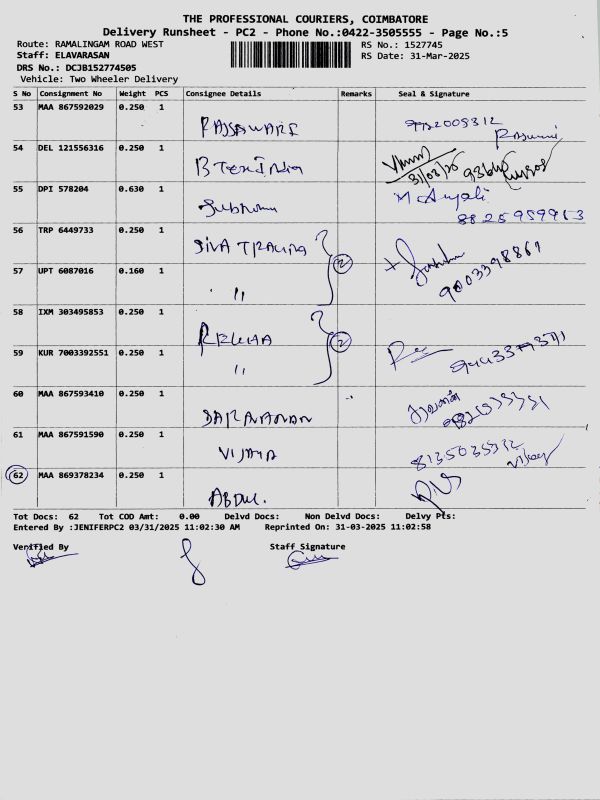 THE PROFESSIONAL COURIERS, COIMBATORE
Delivery Runsheet - PC2 - Phone No.:0422-3505555 - Page No.:5
Route: RAMALINGAM ROAD WEST RS No.: 1527745
Staff: ELAVARASAN RS Date: 31-Mar-2025
DRS No.: DCJB152774505
Vehicle: Two Wheeler Delivery
S No Consignment No Weight PCS Consignee Details Remarks Seal & Signature
53 MAA 867592029 0.250 1
54 DEL 121556316 0.250 1
31/03/25
55 DPI 578204 0.630 1
M Anjali
8825959963
56 TRP 6449733 0.250 1
2
57 UPT 6087016 0.160 1
"
9003398861
58 IXM 303495853 0.250 1
REKHA
2
59 KUR 7003392551 0.250 1
"
60 MAA 867593410 0.250 1
SARAVANAN
61 MAA 867591590 0.250 1
VIJAYA
Vijay
62 MAA 869378234 0.250 1
ABDUL
Tot Docs: 62 Tot COD Amt: 0.00 Delvd Docs: Non Delvd Docs: Delvy Pts:
Entered By :JENIFERPC2 03/31/2025 11:02:30 AM Reprinted On: 31-03-2025 11:02:58
Verified By Staff Signature